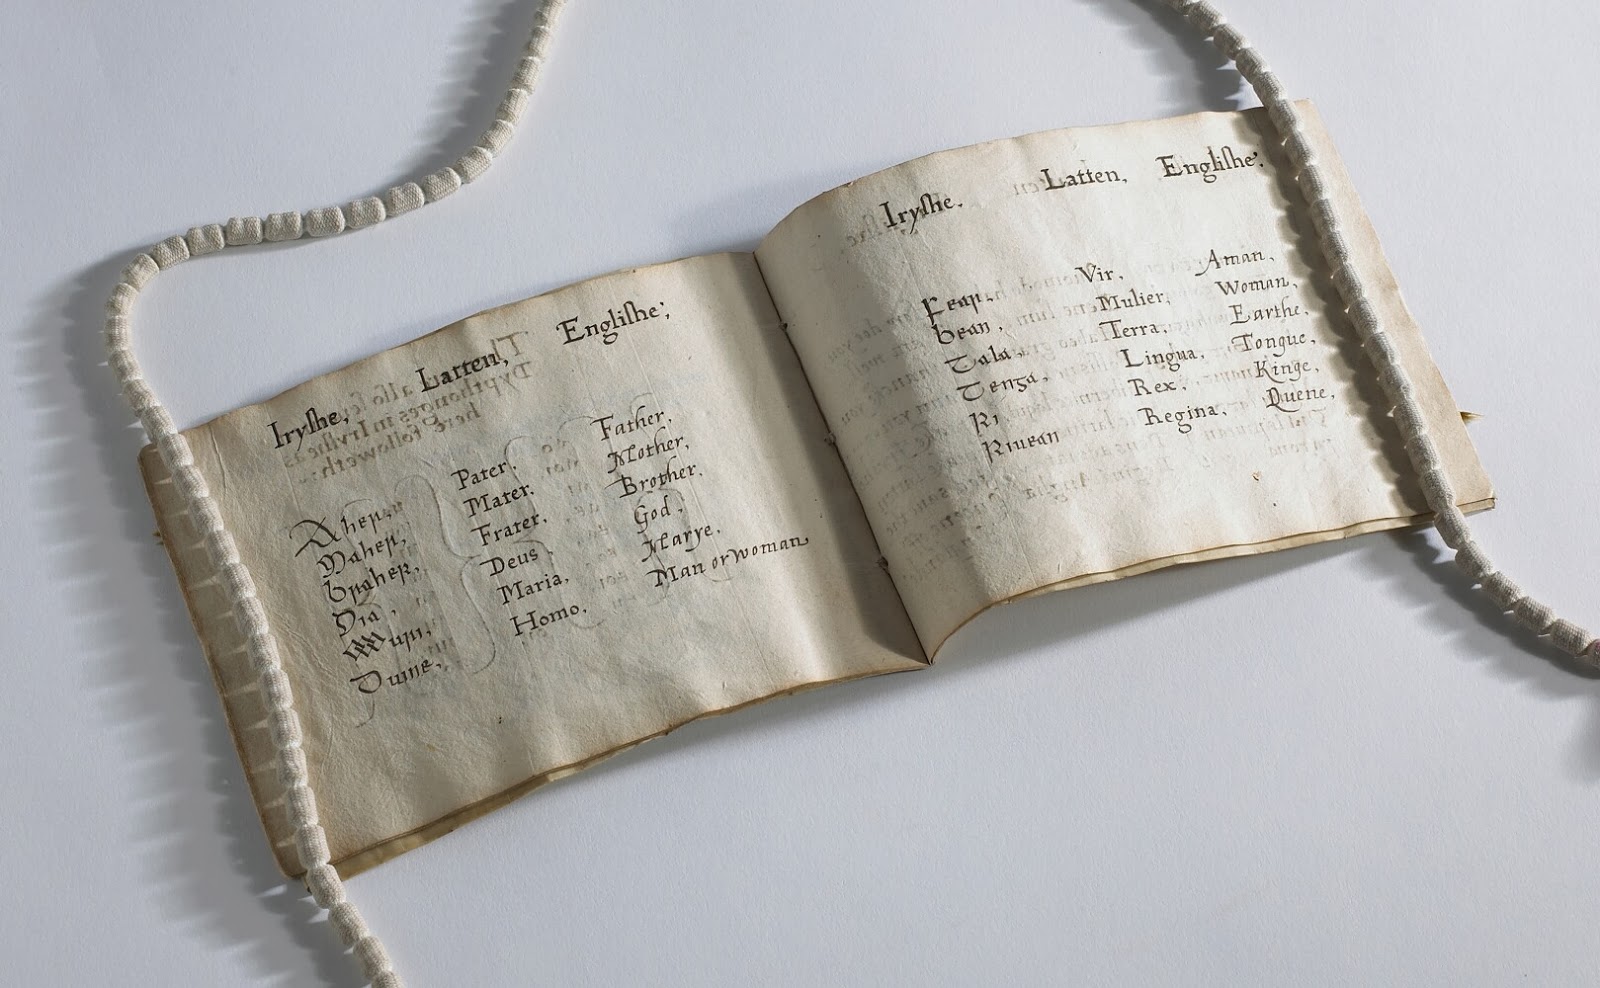 Iryſhe, Latten, Engliſhe;
Aher, Pater, Father,
Maher, Mater, Mother,
braher, Frater, Brother,
Dia, Deus, God,
Muiri, Maria, Marye,
Duine, Homo, Man or woman
Iryſhe. Latten, Engliſhe;
Fear, Vir, Aman,
bean, Mulier, Woman,
Tala, Terra, Earthe,
Tenga, Lingua, Tongue,
Ri Rex, Kinge,
Riuean Regina, Quene,